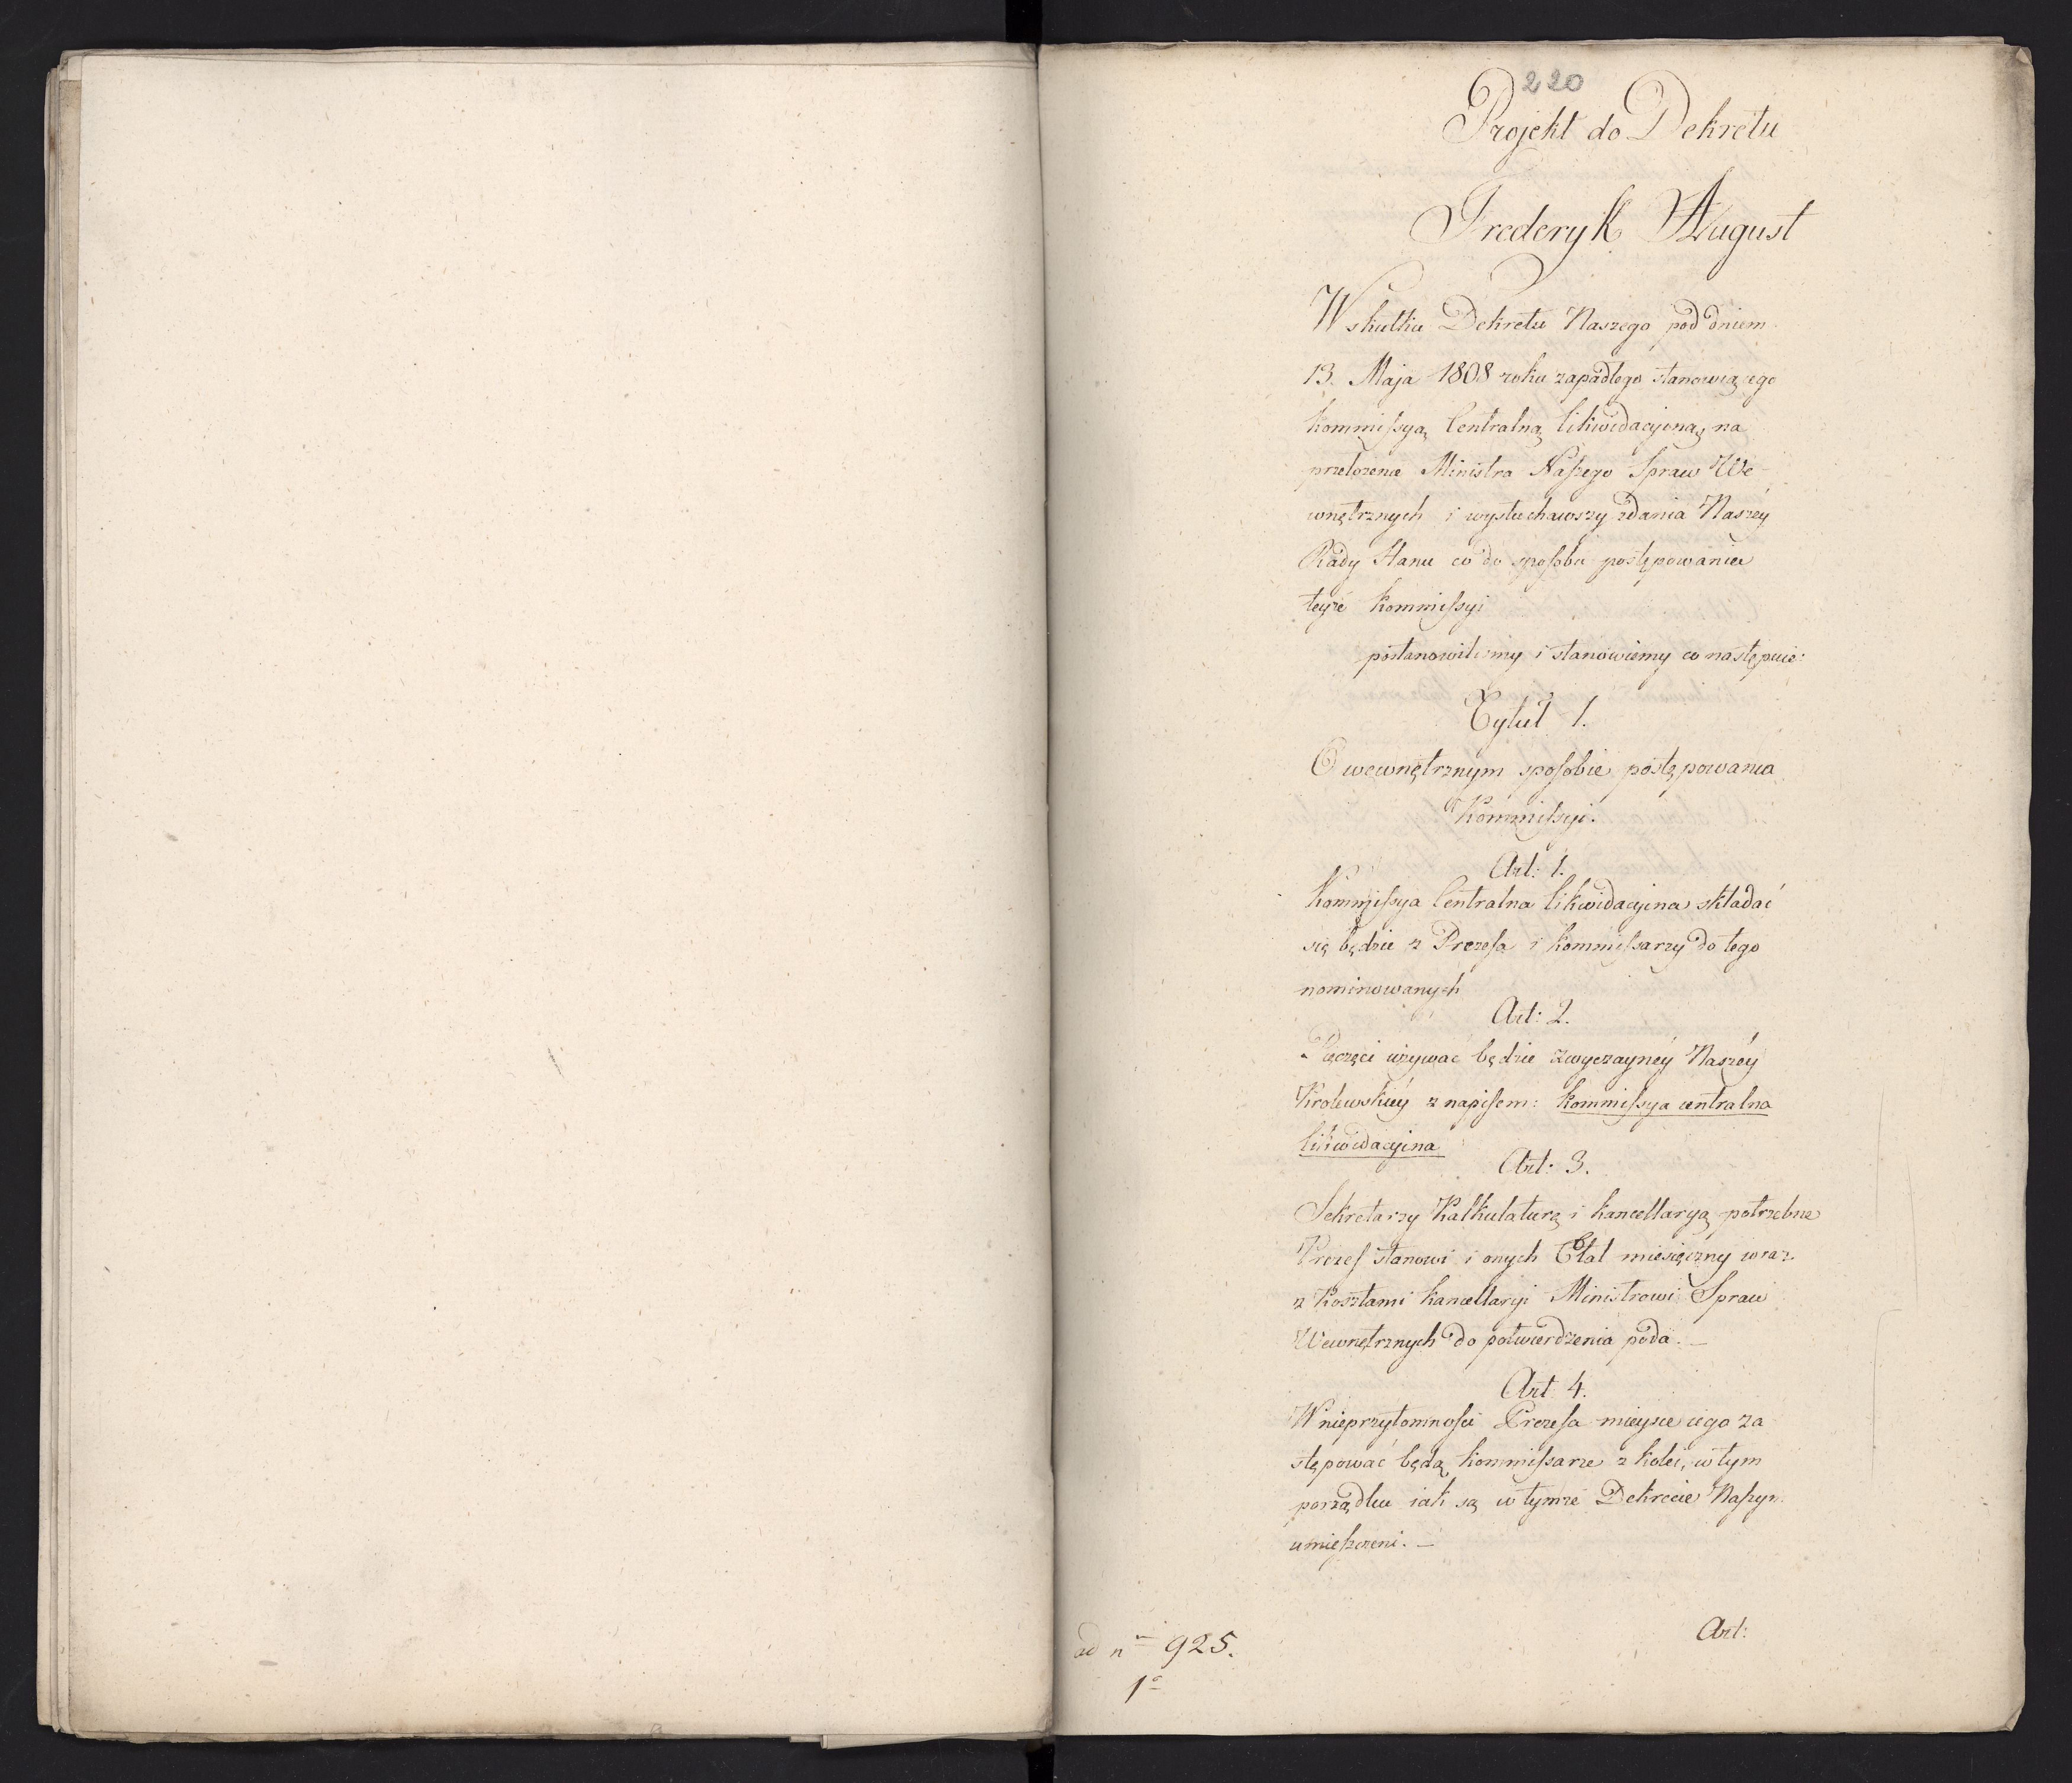 220
Projekt do Dekretu
Frederyk August
W skutku Dekretu Naszego pod dniem
13. Maja 1808 roku zapadłego stanowiącego
Kommissyą Centralną Likwidacyjną, na
przełożenie Ministra Naszego Spraw We-
wnętrznych i wysłuchawszy zdania Naszey
Rady Stanu co do sposobu postępowania
teyże Kommissyi
postanowiliśmy i stanowiemy co następuie:
Tytuł 1.
O wewnętrznym sposobie postępowania
Kommissyi.
Art: 1.
Kommissya Centralna Likwidacyjna składać
się będzie z Prezesa i Kommissarzy do tego
nominowanych
Art: 2.
Pieczęci używać będzie zwyczayney Naszey
Krolewskiey z napisem: Kommissya centralna
likwidacyjna
Art: 3.
Sekretarzy Kalkulaturę i kancellaryą potrzebne
Prezes stanowi i onych Etat miesięczny wraz
z Kosztami kancellaryi Ministrowi Spraw
Wewnętrznych do potwierdzenia poda. —
Art 4.
W nieprzytomności Prezesa mieysce iego za
stępować będą Kommissarze z kolei, w tym
porządku iak są w tymże Dekrecie Naszym
umieszczeni. —
Art:
ad n 925.
1